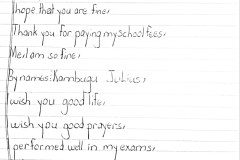 I hope that you are fine,
Thank you for paying my school fees,
Me I am so fine,
By names: Kamburgu Julius,
I wish you good life,
I wish you good prayers,
I performed well in my exams,